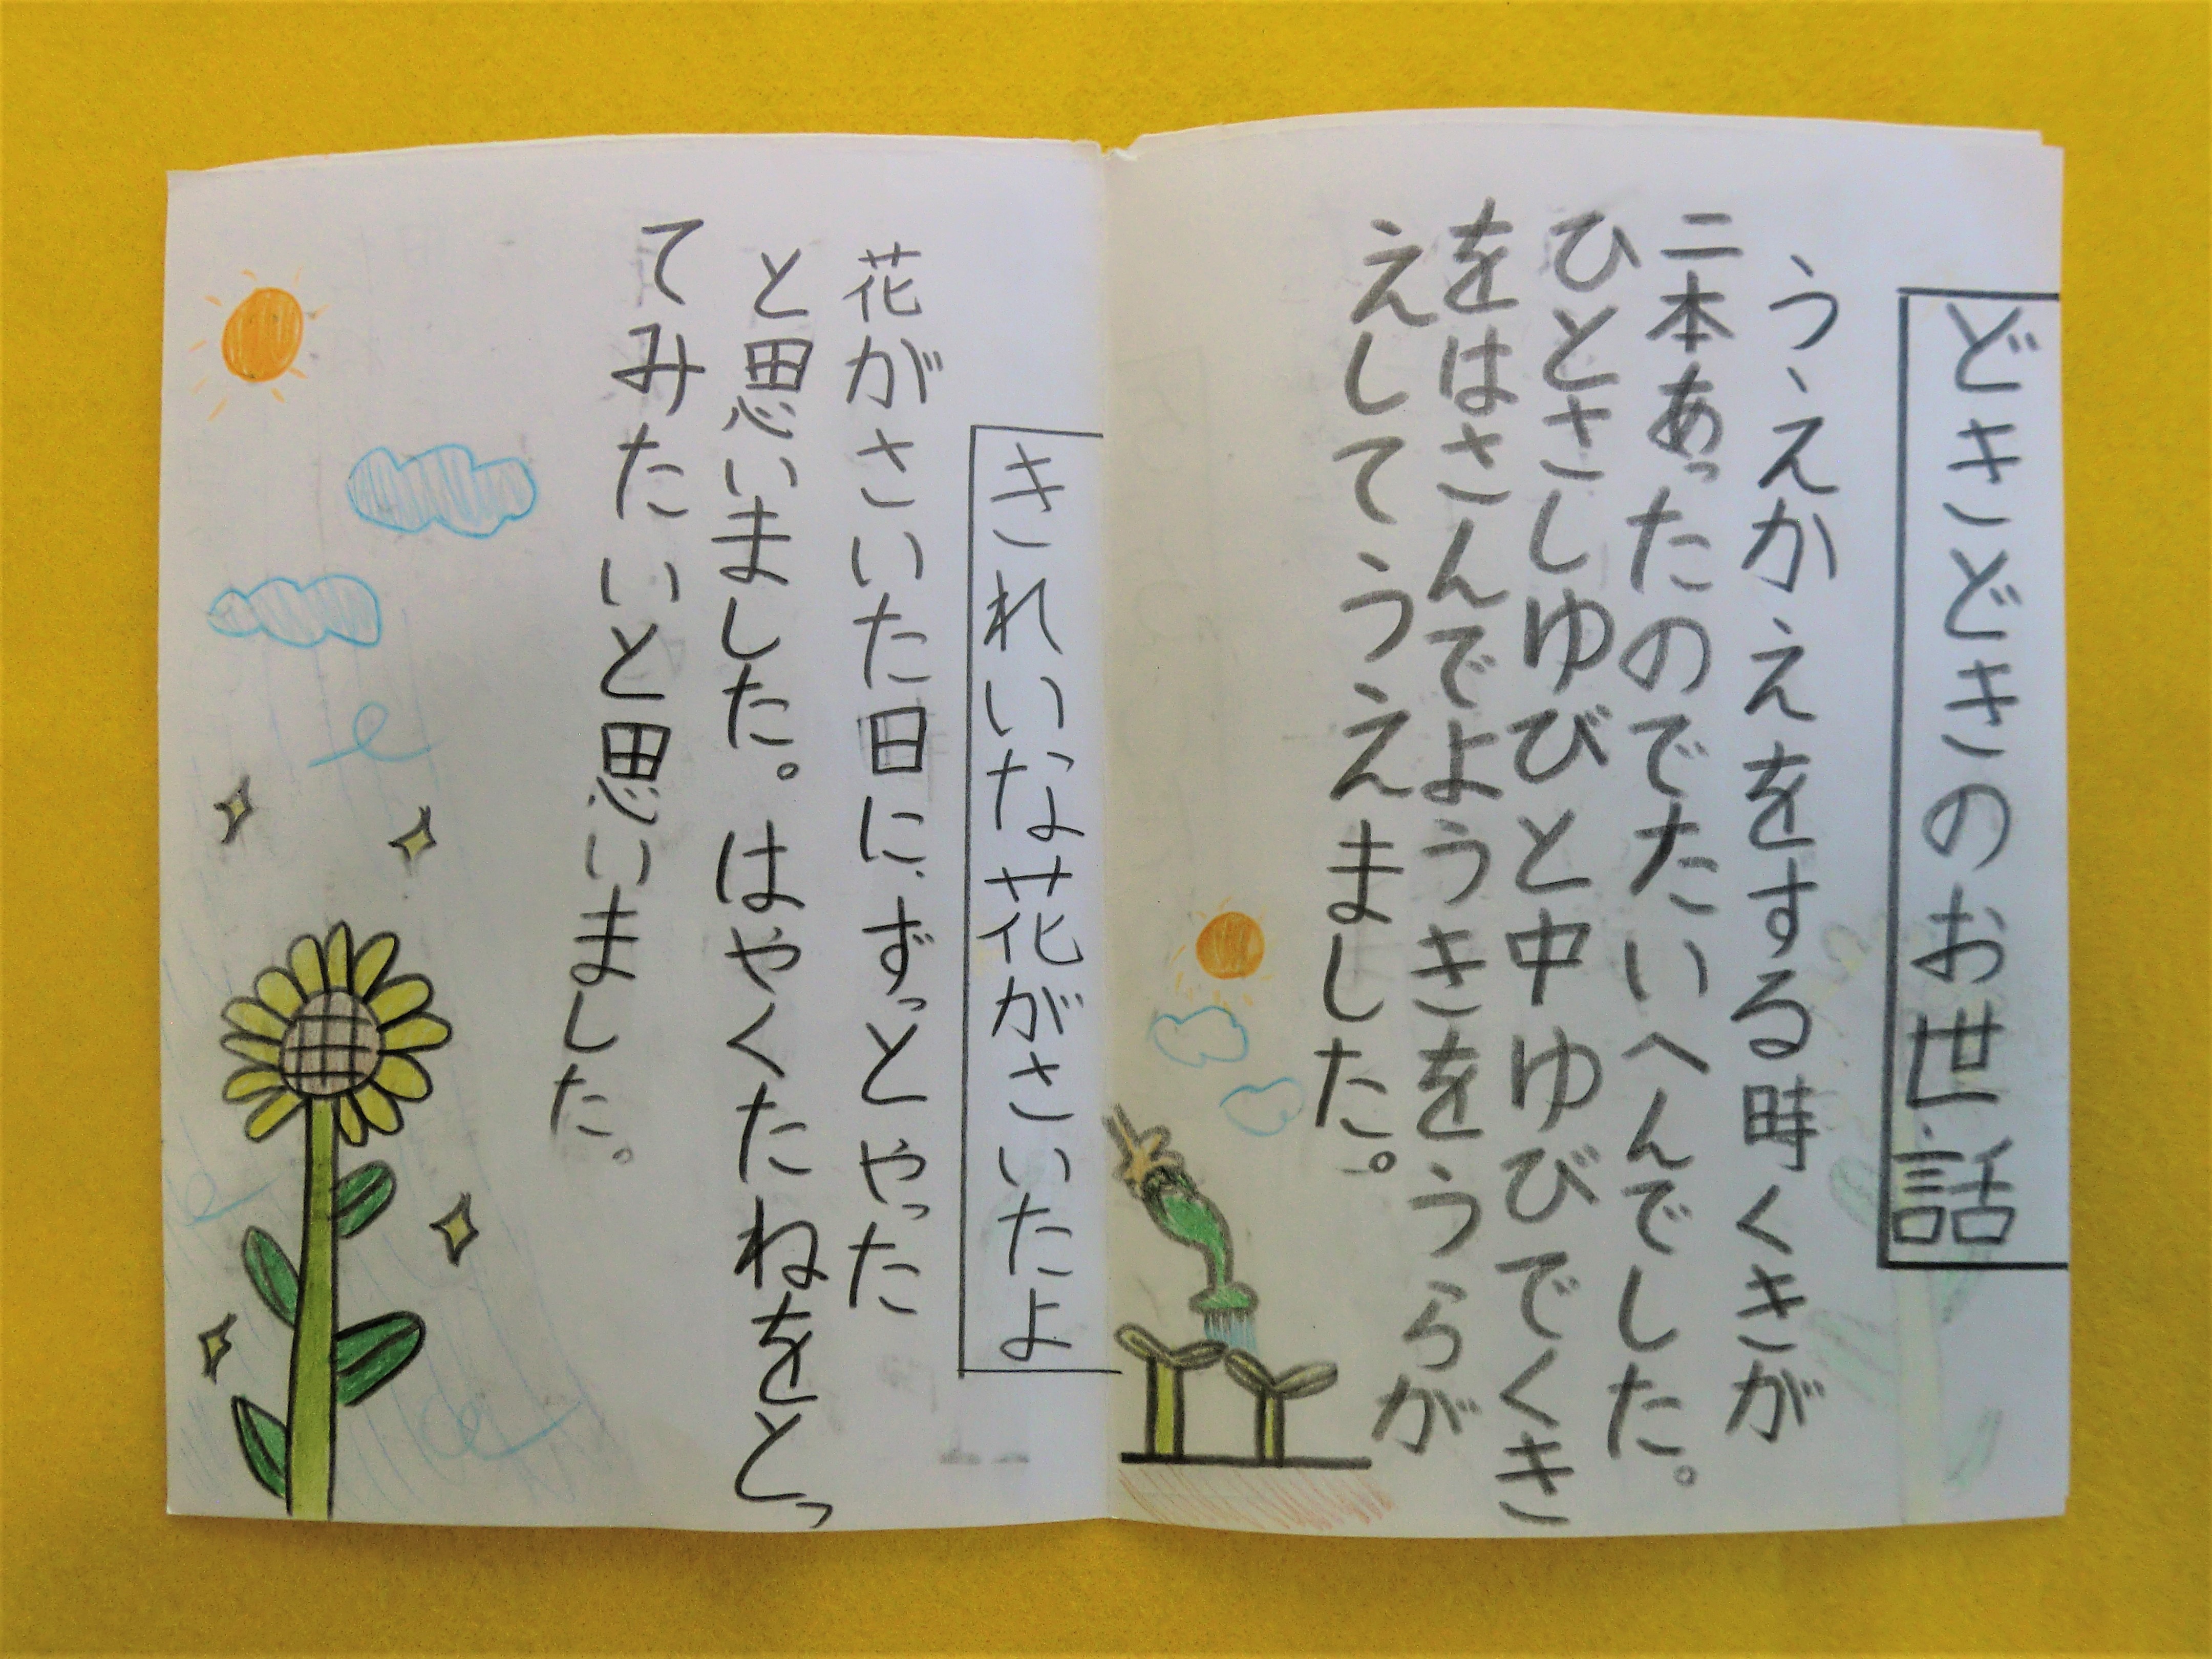 どきどきのお世話
う、えかえをする時くきが
二本あったのでたいへんでした。
ひとさしゆびと中ゆびでくき
をはさんでようきをうらが
えしてうえました。
きれいな花がさいたよ
花がさいた日に、ずっとやった
と思いました。はやくたねをとっ
てみたいと思いました。